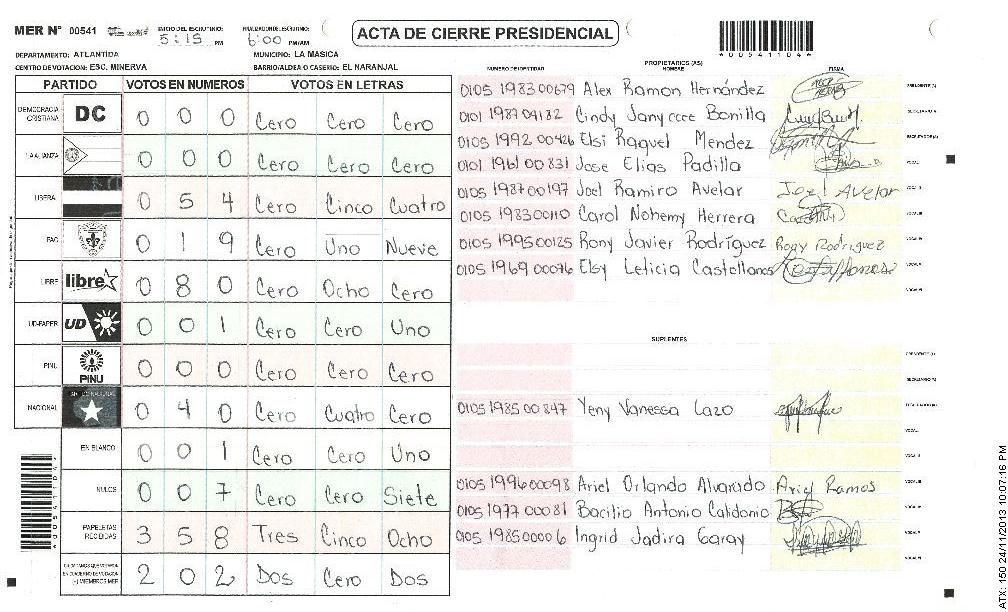 MER N° 00541 INICIO DEL ESCRUTINIO: 5:15 PM FINALIZACION DE ESCRUTINIO: 6:00 PM/AM
ACTA DE CIERRE PRESIDENCIAL
*00541104*
DEPARTAMENTO: ATLANTIDA MUNICIPIO: LA MASICA
CENTRO DE VOTACION: ESC. MINERVA BARRIO/ALDEA O CASERIO: EL NARANJAL
PARTIDO VOTOS EN NUMEROS VOTOS EN LETRAS
DEMOCRACIA CRISTIANA DC 0 0 0 Cero Cero Cero
LA ALIANZA 0 0 0 Cero Cero Cero
LIBERAL 0 5 4 Cero Cinco Cuatro
PAC 0 1 9 Cero Uno Nueve
LIBRE libre 0 8 0 Cero Ocho Cero
UD-FAPER UD 0 0 1 Cero Cero Uno
PINU PINU 0 0 0 Cero Cero Cero
NACIONAL 0 4 0 Cero Cuatro Cero
EN BLANCO 0 0 1 Cero Cero Uno
NULOS 0 0 7 Cero Cero Siete
PAPELETAS RECIBIDAS 3 5 8 Tres Cinco Ocho
CIUDADANOS QUE VOTARON EN CUADERNO DE VOTACION (+) MIEMBROS MER 2 0 2 Dos Cero Dos
PROPIETARIOS (AS)
NUMERO DE IDENTIDAD NOMBRE FIRMA
0105 1983 00679 Alex Ramon Hernández PRESIDENTE (A)
0101 1987 04182 Cindy Janyccce Bonilla SECRETARIO (A)
0105 1992 00426 Elsi Raquel Mendez ESCRUTADOR (A)
0101 1961 00831 Jose Elias Padilla VOCAL I
0105 1987 00197 Joel Ramiro Avelar Joel Avelar VOCAL II
0105 1983 00110 Carol Nohemy Herrera VOCAL III
0105 1995 00125 Rony Javier Rodríguez Rony Rodriguez VOCAL IV
0105 1969 00076 Elsy Leticia Castellanos VOCAL V
VOCAL VI
SUPLENTES
PRESIDENTE (A)
SECRETARIO (A)
0105 1985 00847 Yeny Vanessa Lazo ESCRUTADOR (A)
VOCAL I
VOCAL II
0105 1996 00098 Ariel Orlando Alvarado Ariel Ramos VOCAL III
0105 1977 00081 Bacilio Antonio Calidonio VOCAL IV
0105 1985 0000 6 Ingrid Jadira Garay VOCAL V
VOCAL VI
*00541104*
ATX: 150 24/11/2013 10:07:16 PM